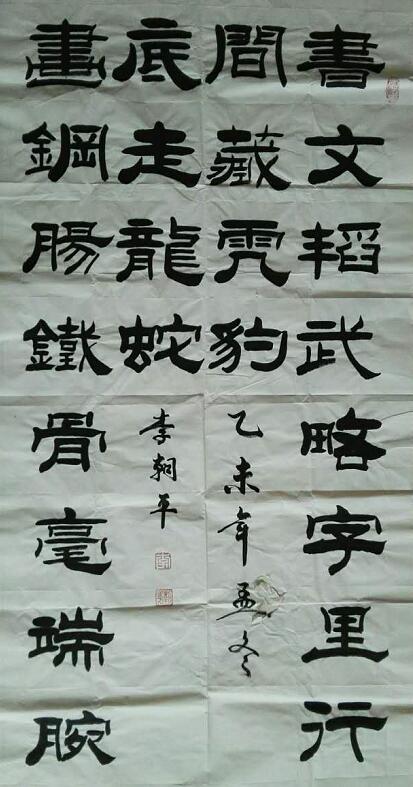 書文韜武略字里行
間藏虎豹
乙未年孟冬
畫鋼腸鐵骨毫端腕
底走龍蛇
李朝平